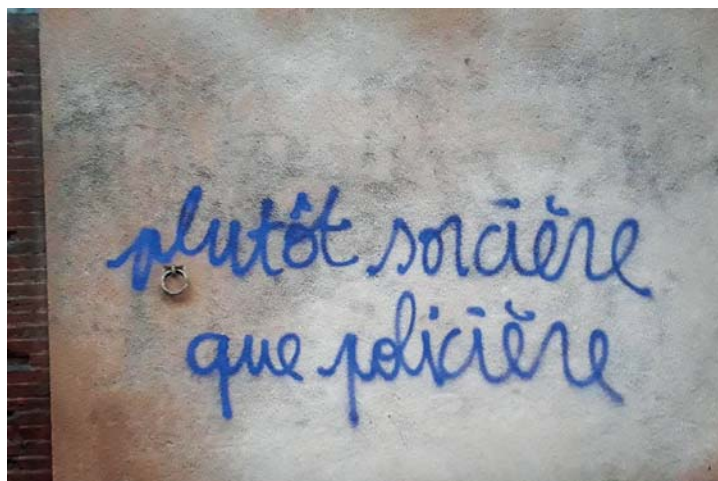 plutôt sorcière
que policière